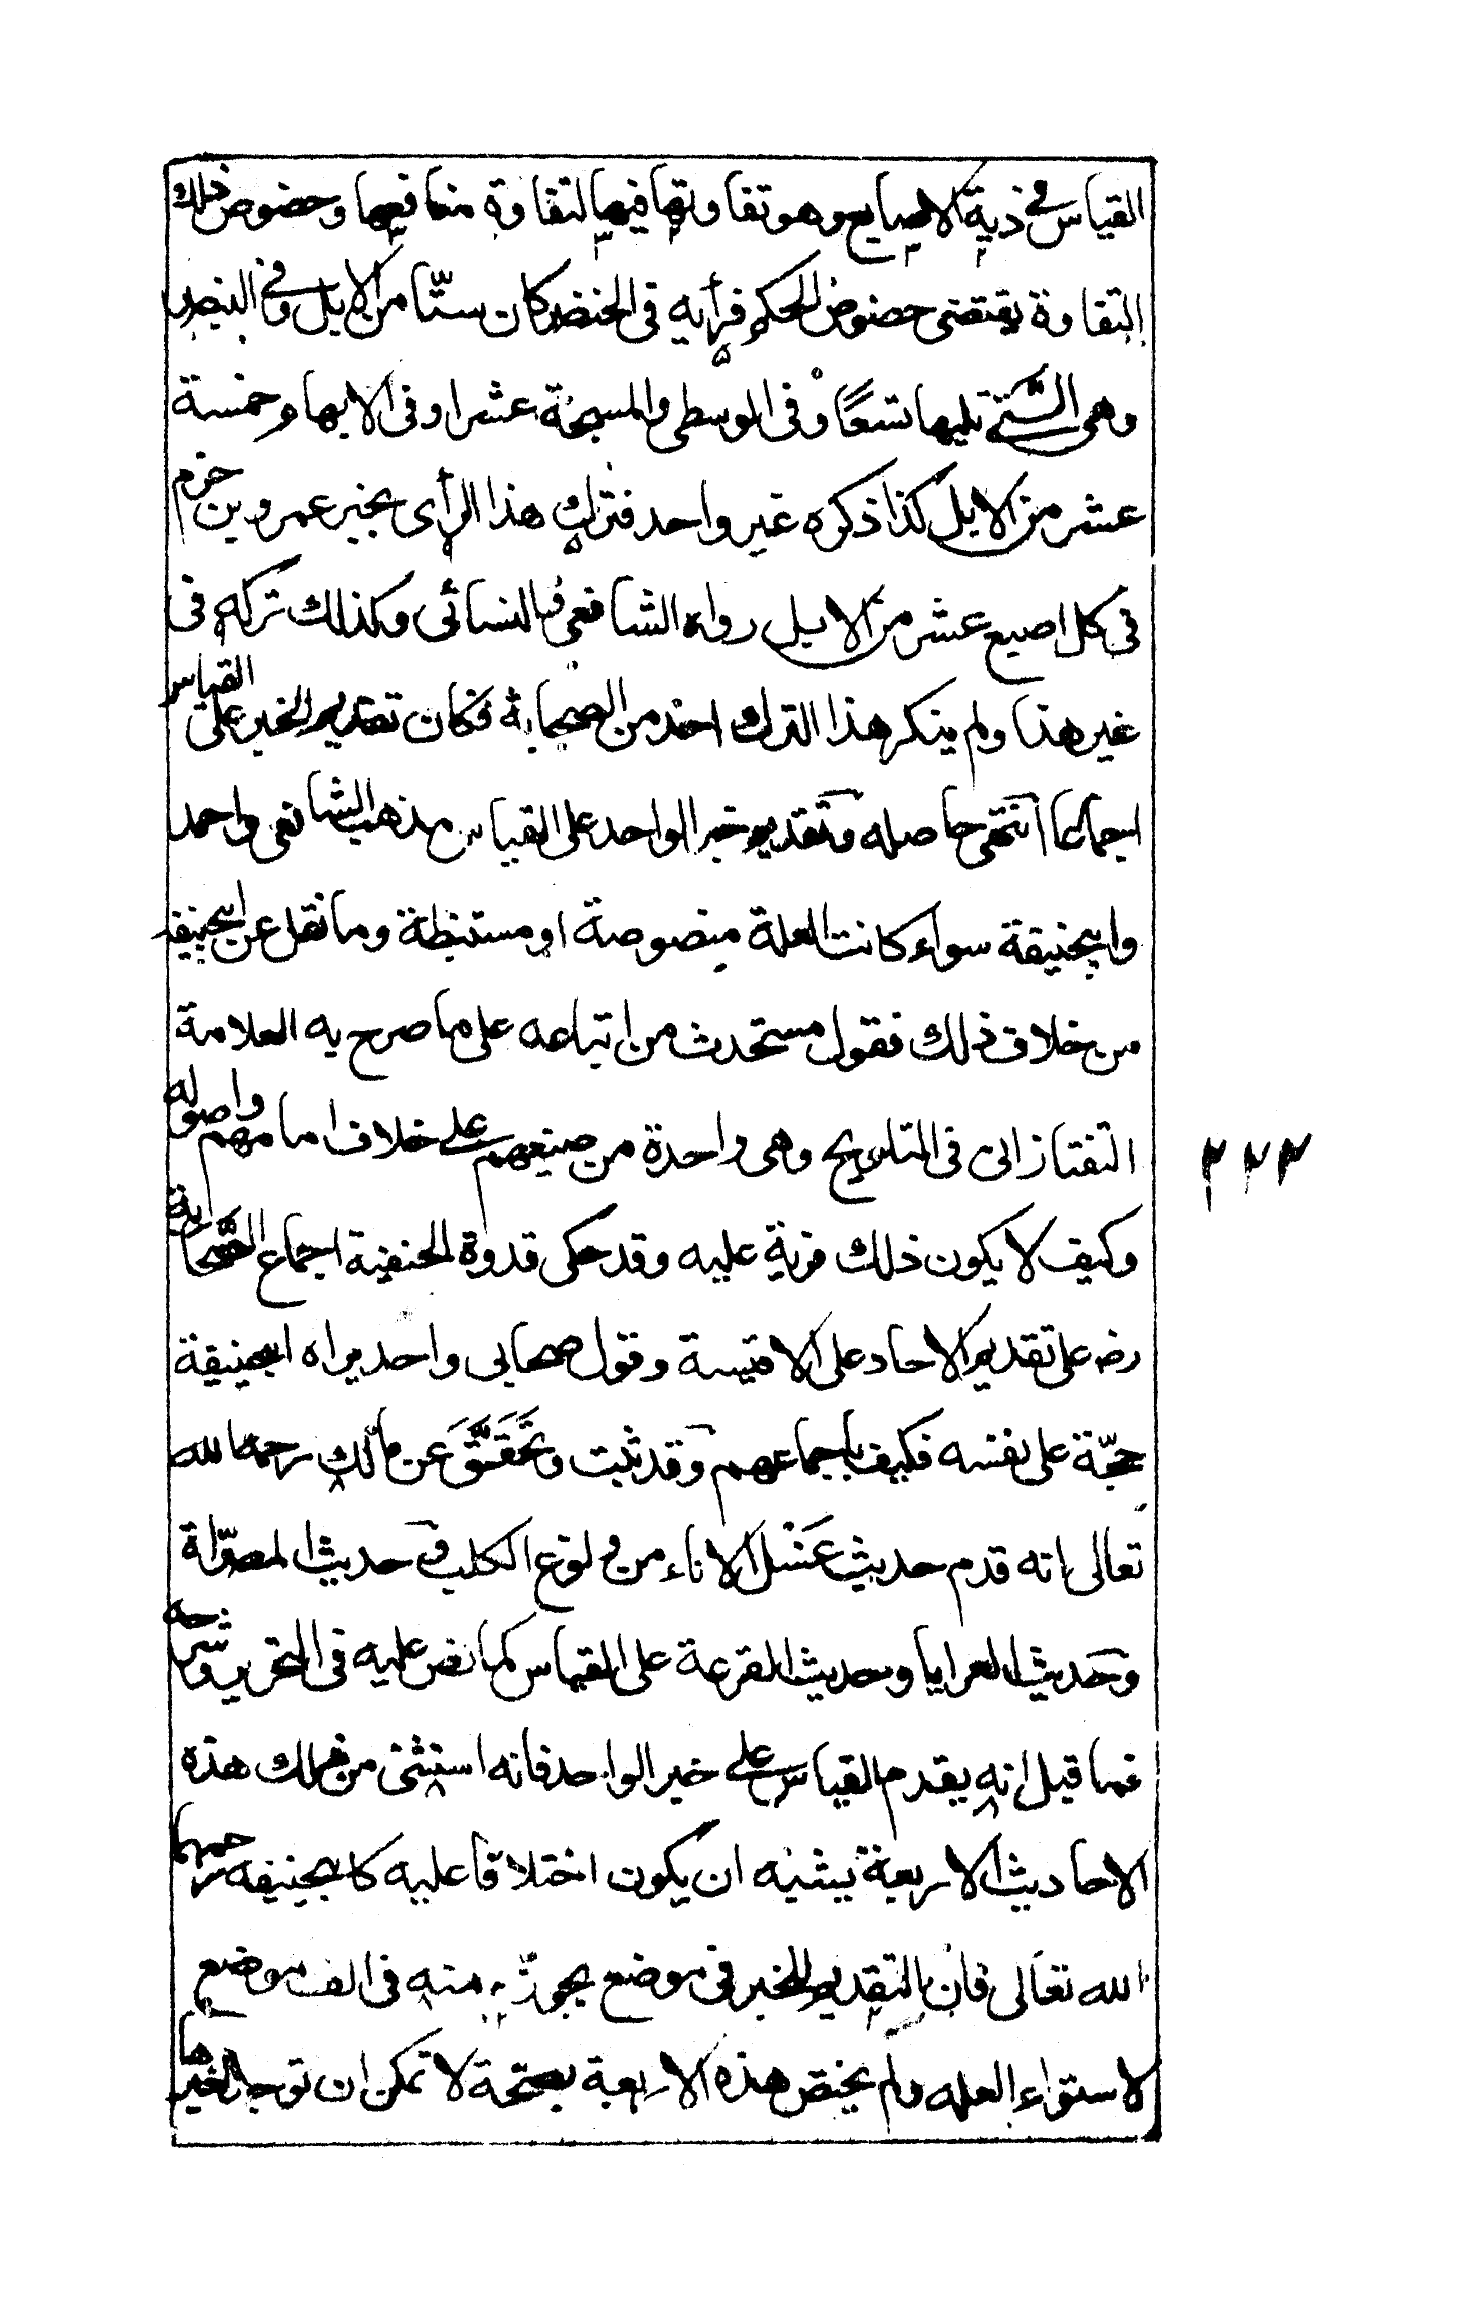 القياس في دية الاصابع وهو تفاوتها فيها لتفاوة منافعها وخصوص ذلك
التفاوة يقتضى خصوص الحكم فرأيه فى الخنصر كان ستّا من الابل وفى البنصر
وهى الّتى تليها تسعًا وفى الوسطى والمسبحة عشرا وفى الابهام خمسة
عشر من الابل كذا ذكره غير واحد فترك هذا الرأى بخبر عمرو بن حزم
فى كل اصبع عشر من الابل رواه الشافعى والنسائى وكذلك تركه فى
غير هذا ولم ينكر هذا الترك احد من الصحابة فكان تقديم الخبر على القياس
اجماعا انتهى حاصله وتقديم خبر الواحد على القياس مذهب الشافعى واحمد
وابيحنيفة سواء كانت العلة منصوصة او مستنبطة وما نقل عن ابيحنيفة
من خلاف ذلك فقول مستحدث من اتباعه على ما صرح به العلامة
التفتازانى فى التلويح وهى واحدة من صنيعهم على خلاف امامهم واصوله
وكيف لا يكون ذلك فرية عليه وقد حكى قدوة الحنفية اجماع الصَّحابة
رضـ على تقديم الاحاد على الاقيسة وقول صحابى واحد يراه ابيحنيفة
حجّة على نفسه فكيف باجماعهم وقد ثبت وتَحَقَّقَ عَن مالك رحمه الله
تعالى انه قدم حديث غَسْل الاناء من ولوغ الكلب وحديث المصرّاة
وحديث العرايا وحديث القرعة على القياس كما نص عليه فى التحرير وشرحه
فما قيل انه يقدم القياس على خبر الواحد فانه استثنى من ذلك هذه
الاحاديث الاربعة يشبه ان يكون اختلاقا عليه كابيحنيفه رحمهما
الله تعالى فان التقديم للخبر فى موضع يجوزّ منه فى الف موضع
لاستواء العله ولم يختص هذه الاربعة بصحة لا تمكن ان توجد لغيرها
٢٧٣